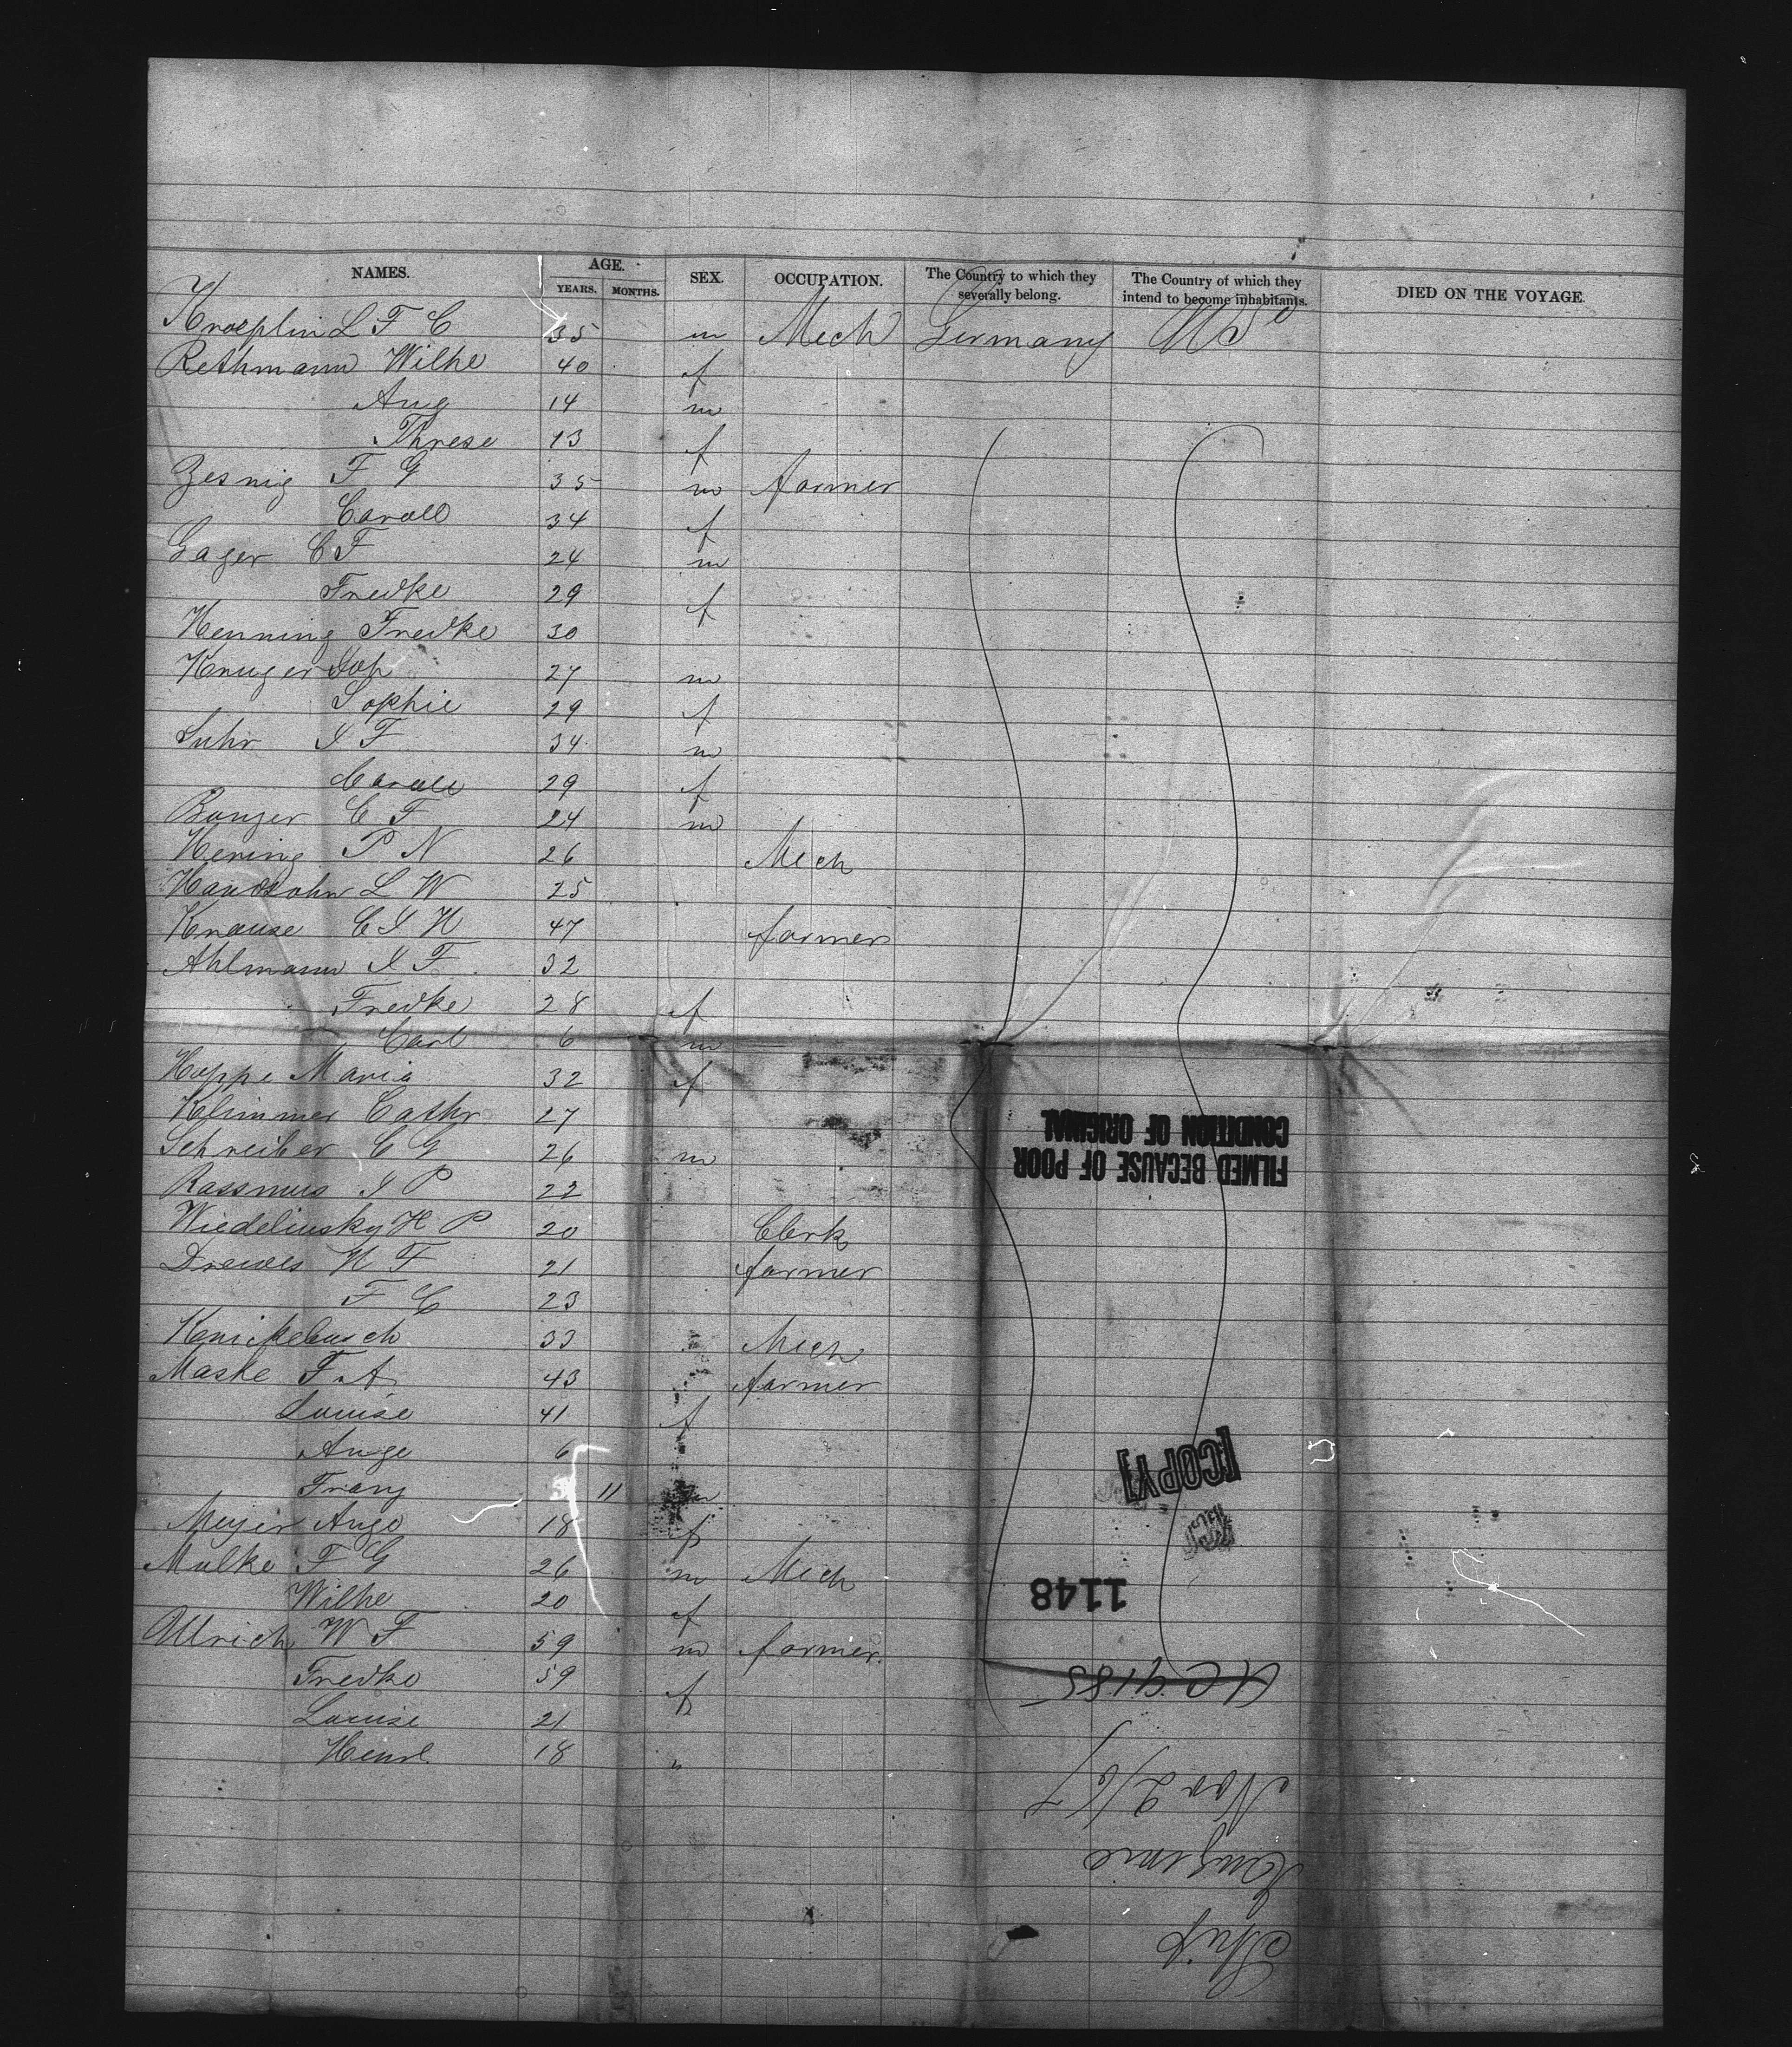 NAMES. AGE. SEX. OCCUPATION. The Country to which they severally belong. The Country of which they intend to become inhabitants. DIED ON THE VOYAGE.
YEARS. MONTHS.
Kroeplin L F C 35 m Mech Germany US
Rethmann Wilhe 40 f
Aug 14 m
Threse 13 f
Zesnig F G 35 m farmer
Caroll 34 f
Gager C F 24 m
Fredke 29 f
Henning Fredke 30
Kruger Joh 27 m
Sophie 29 f
Suhr J F 34 m
Caroll 29 f
Bonger C F 24 m
Hering P N 26 Mech
L W 25
Krause C J H 47 farmer
Ahlmann J F 32
Fredke 28 f
Carl 6 m
Hoppe Maria 32 f
Klimmer Cathr 27
Schreiber C G 26 m
Rassmus J P 22
Wiedelinsky H P 20 Clerk
Drewes H F 21 farmer
F C 23
Knickebusch 33 Mech
Maske F A 43 farmer
Louise 41 f
Auge 6
Franz 11 m
Meyer Auge 18 f
Mulke F G 26 m Mech
Wilhe 20 f
Ullrich W F 59 m farmer.
Fredke 59 f
Louise 21
Henrl. 18 "
Ship
Eugenie
Nov 2/67
4185
1148
[COPY]
FILMED BECAUSE OF POOR
CONDITION OF ORIGINAL